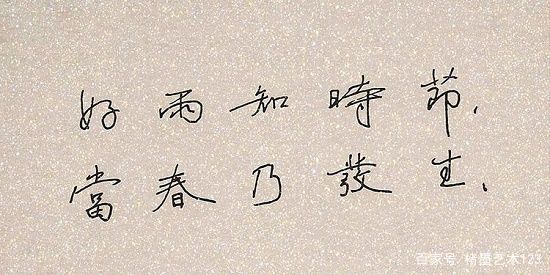 好雨知時節，
當春乃發生、
百家号/楮墨艺术123